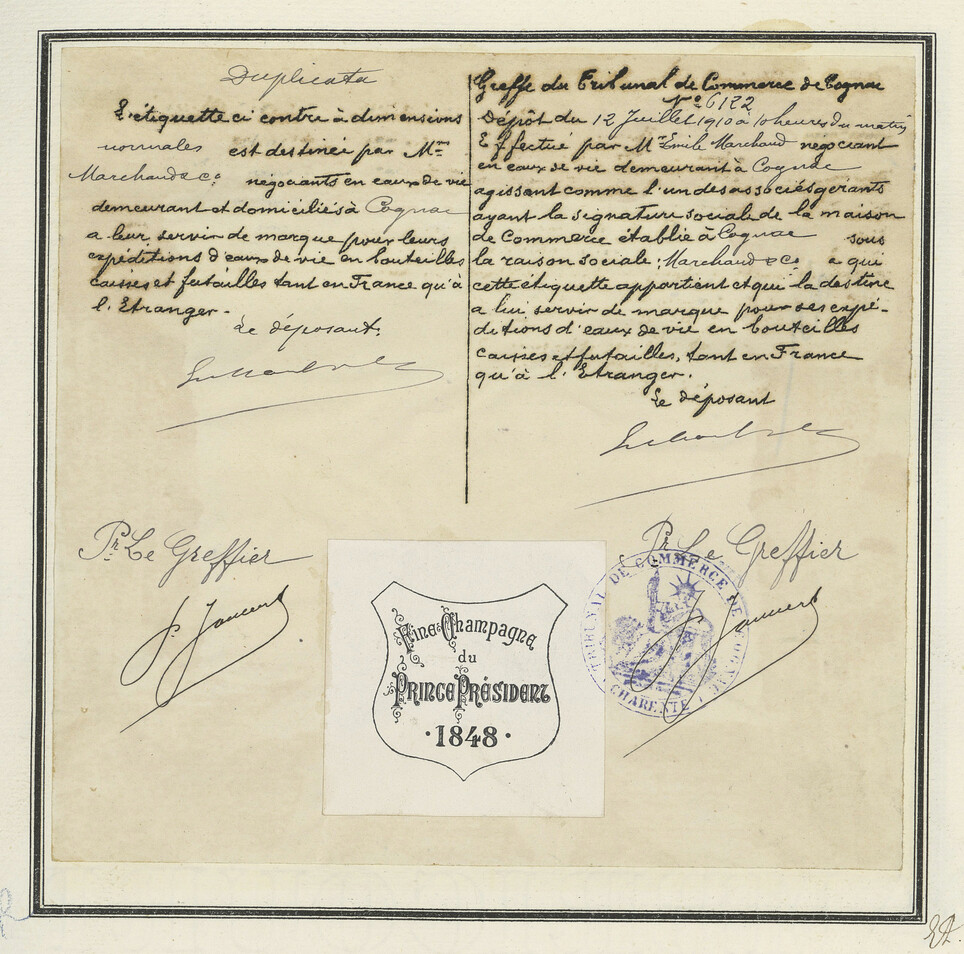 Duplicata
L'étiquette ci contre à dimensions
normales est destinée par Mrs
Marchaud & Co négociants en eaux de vie
demeurant et domiciliés à Cognac
a leur servir de marque pour leurs
expéditions d'eaux de vie en bouteilles
caisses et futailles tant en France qu'à
l'Etranger.
Le déposant.
Greffe du Tribunal de Commerce de Cognac
No 6122
Dépôt du 12 Juillet 1910 à 10 heures du matin
Effectué par Mr Emile Marchaud négociant
en eaux de vie demeurant à Cognac
agissant comme l'un des associés gérants
ayant la signature sociale de la maison
de Commerce établie à Cognac sous
la raison sociale : Marchaud & Co a qui
cette étiquette appartient et qui la destine
a lui servir de marque pour ses expé-
ditions d'eaux de vie en bouteilles
caisses et futailles, tant en France
qu'à l'Etranger.
Le déposant
Pr Le Greffier
Pr Le Greffier
TRIBUNAL DE COMMERCE DE COGNAC
CHARENTE
Fine Champagne
du
PRINCE PRÉSIDENT
· 1848 ·